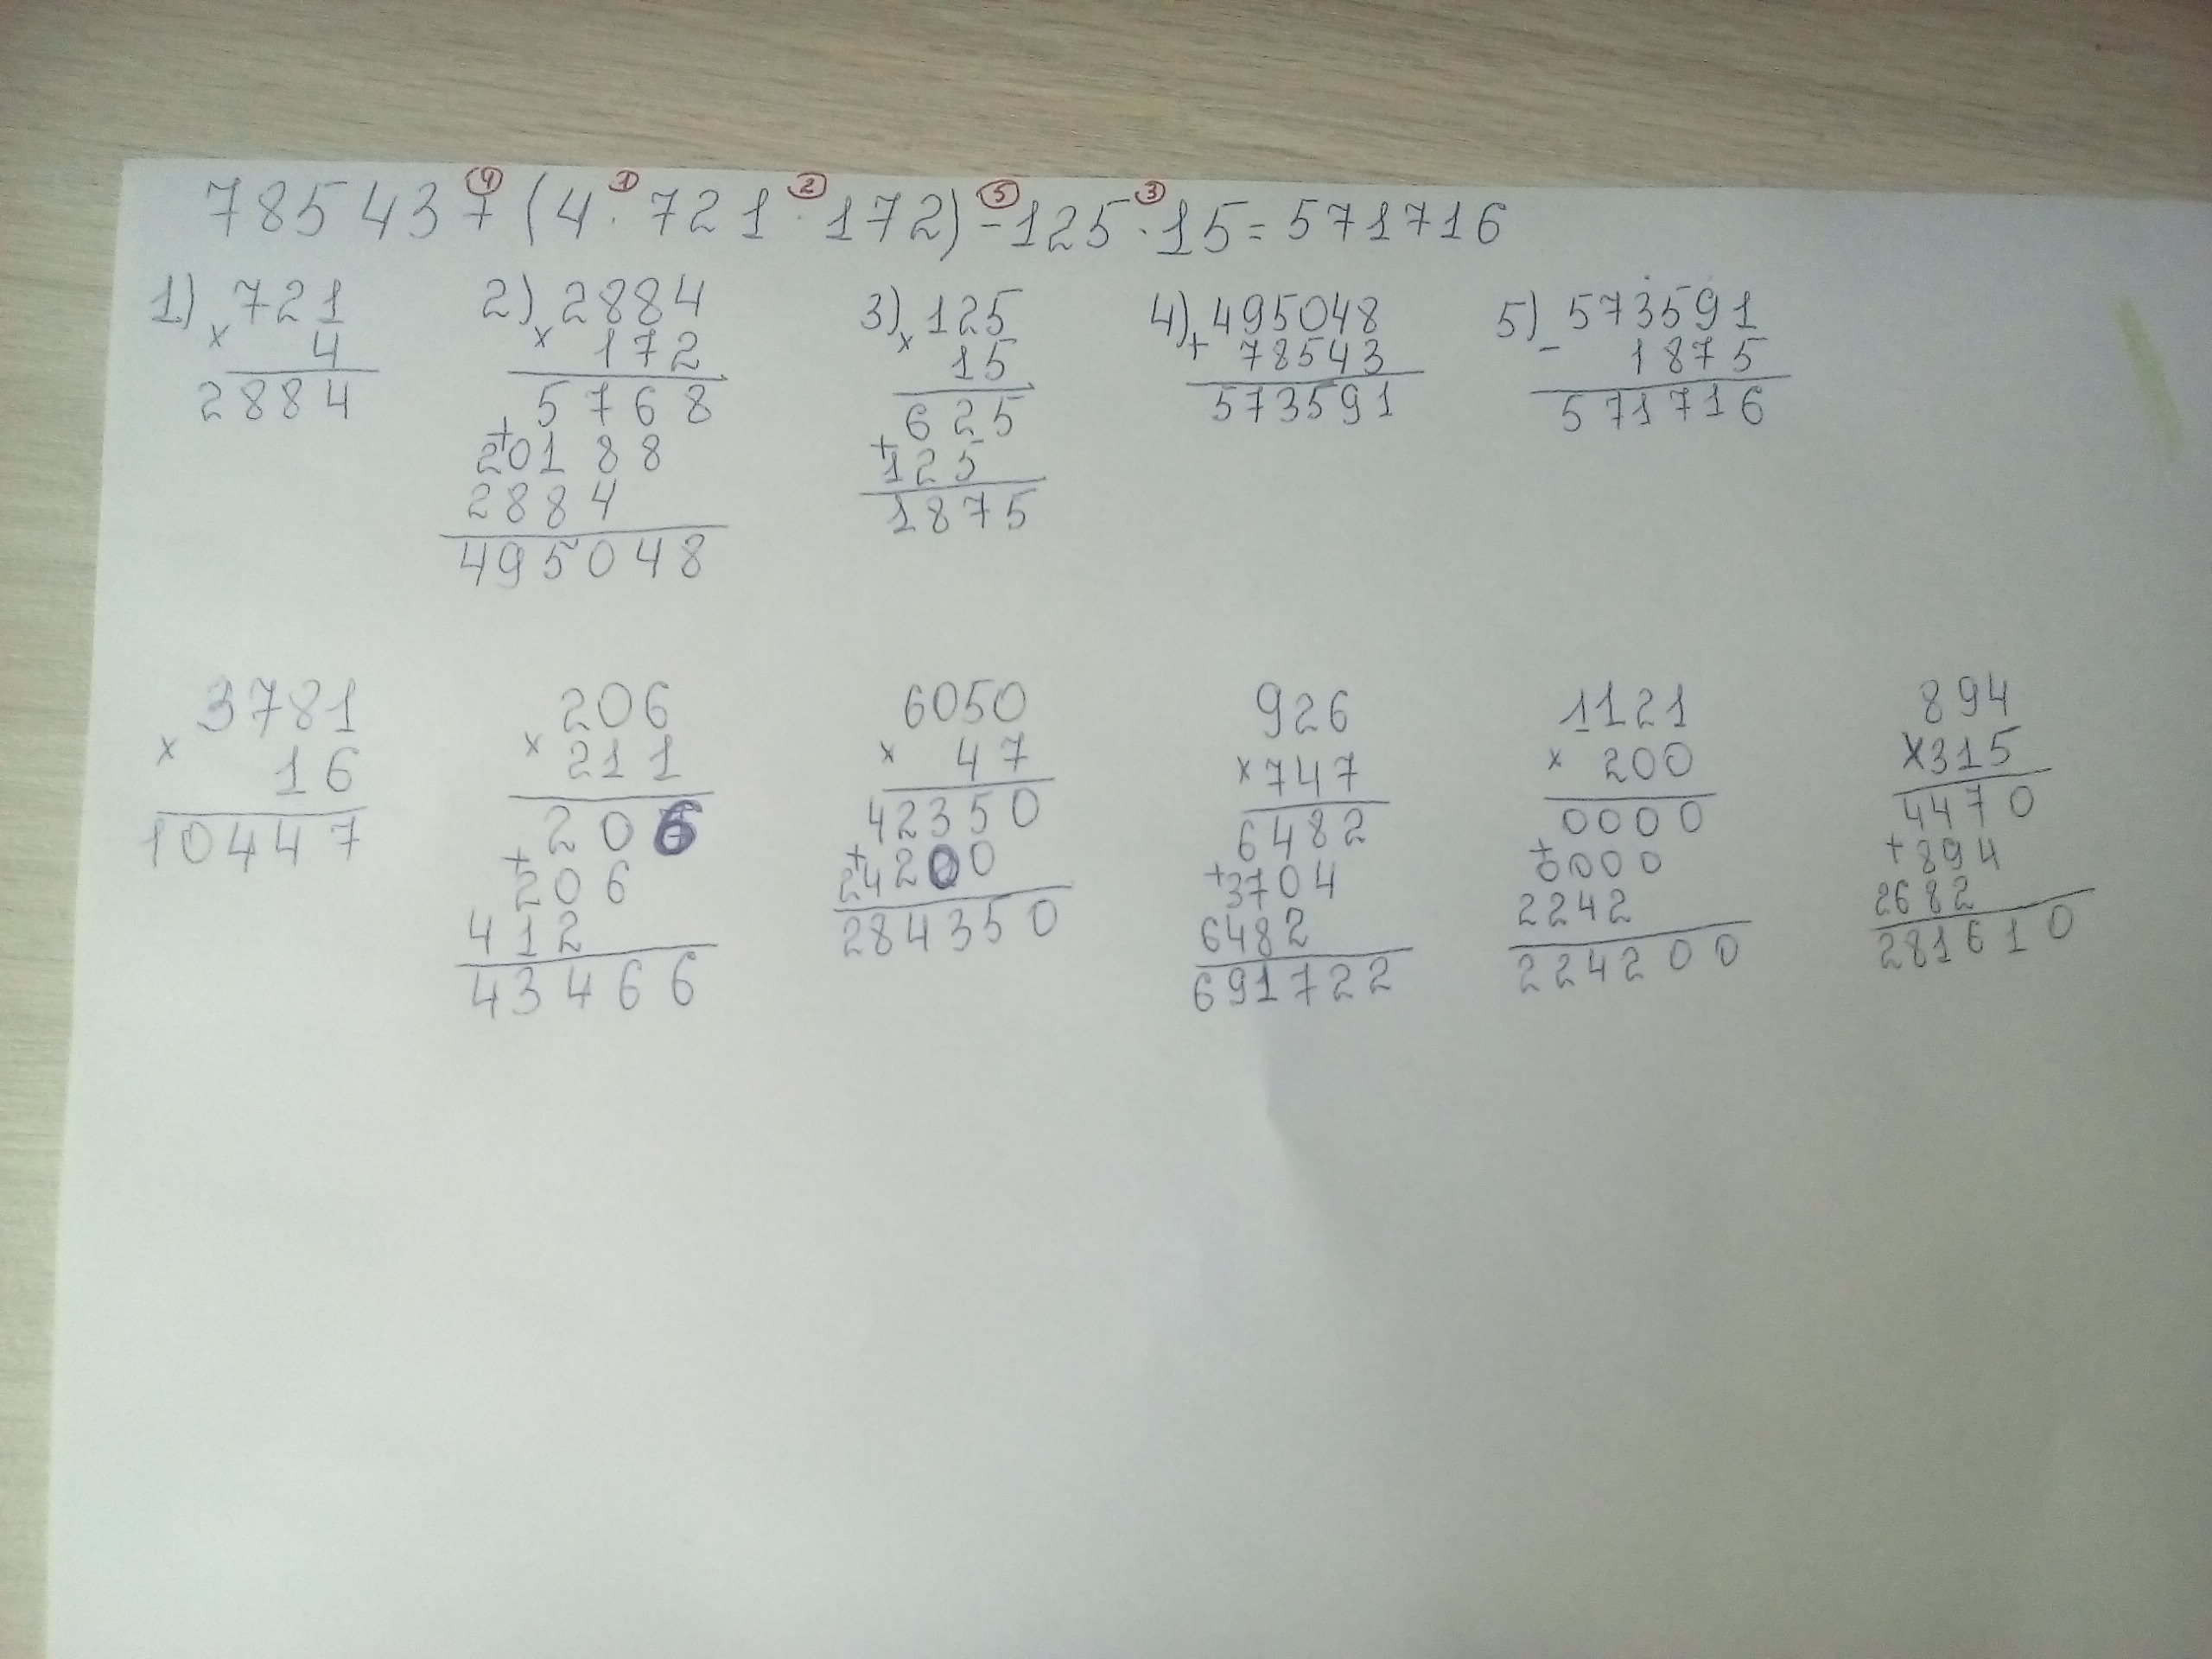 4 1 2 5 3
78543+(4·721·172)-125·15=571716
1) 721
× 4
2884
2) 2884
× 172
5768
+
20188
2884
495048
3) 125
× 15
625
+
125
1875
4) 495048
+ 78543
573591
5) 573591
- 1875
571716
3781
× 16
10447
206
× 211
206
+
206
412
43466
6050
× 47
42350
+
24200
284350
926
×747
6482
+3704
6482
691722
1121
× 200
0000
+
0000
2242
224200
894
×315
4470
+894
2682
281610